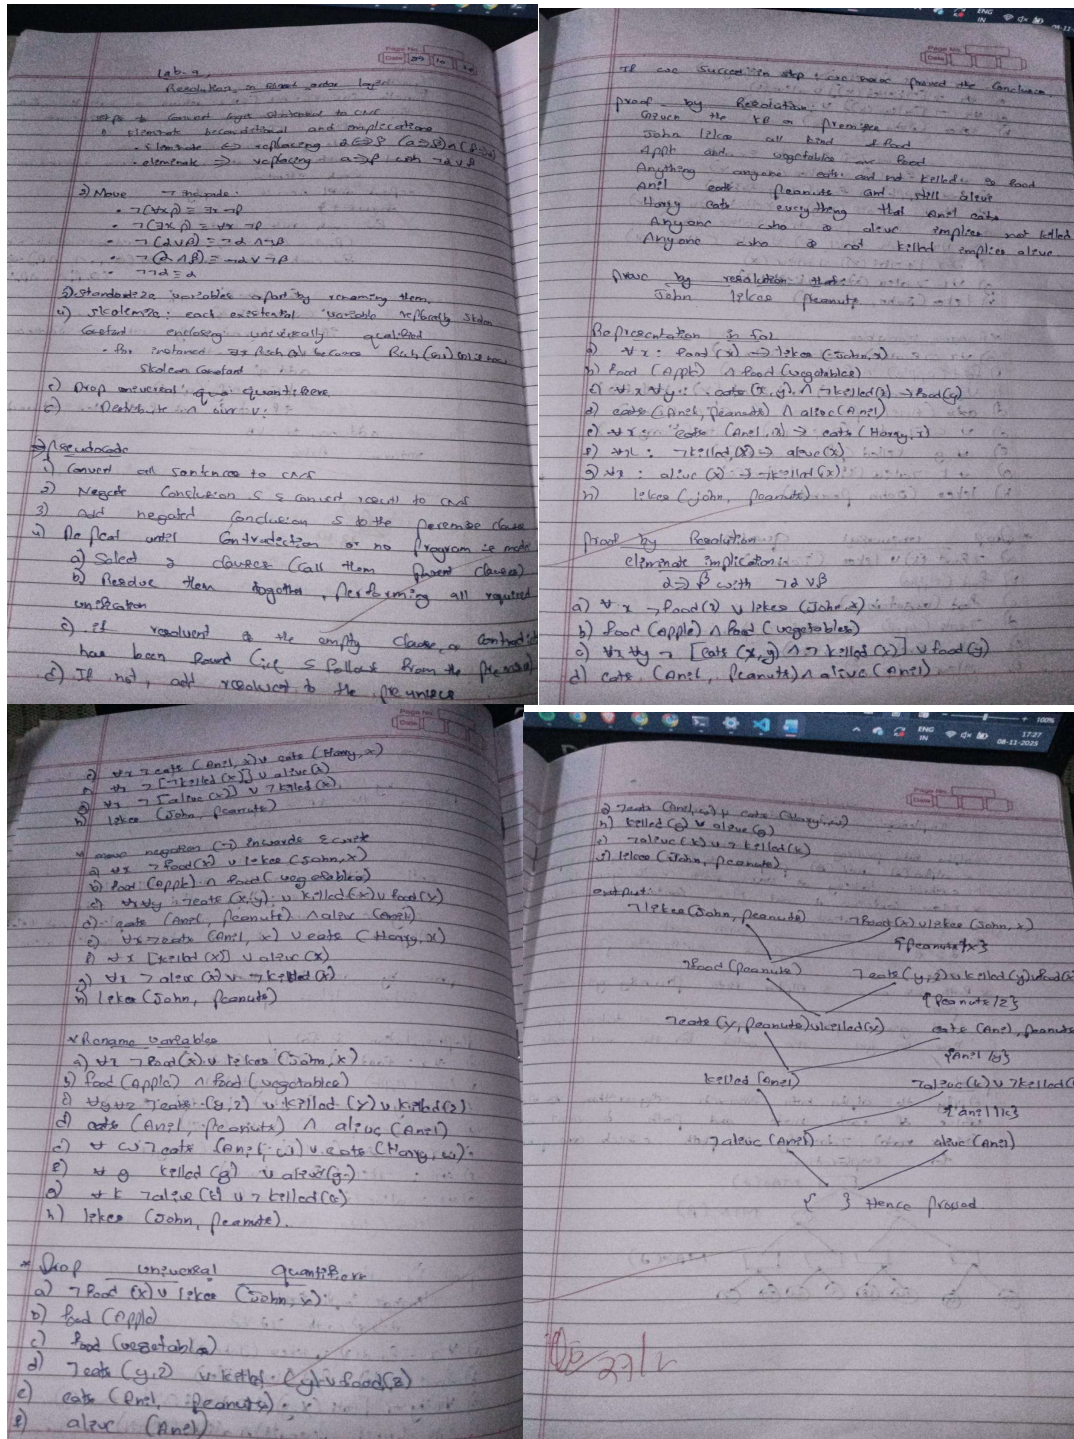 Page No.
Date
Lab-9,
Resolution in first order logic
steps to convert logic statement to CNF
1) eliminate biconditional and implications
• eliminate ⇔ replacing α⇔β (α⇒β)∧(β⇒α)
• eleminate ⇒ replacing α⇒β with ¬α∨β
2) Move ¬ inwards.
• ¬(∀x p) ≡ ∃x ¬p
• ¬(∃x p) ≡ ∀x ¬p
• ¬(α∨β) ≡ ¬α ∧ ¬β
• ¬(α∧β) ≡ ¬α ∨ ¬β
• ¬¬α ≡ α
3) standardize variables apart by renaming them,
4) skolemize: each existential variable replaced by skolem
constant enclosing universally
Skolem Constant
5) Drop universal quantifiers
Distribute ∧ over ∨.
⇒ Pseudocode
1) Convert all sentences to CNF
2) Negate Conclusion S & convert result to CNF
3) Add negated Conclusion S to the premise clause
4) Repeat until Contradiction or no Program is made
a) Select 2 clauses (call them parent clauses)
b) Resolve them together, performing all required
unification
c) if resolvent is the empty clause, a contradict
has been found (i.e S follows from the premise)
d) If not, add resolvent to the premises
Page No.
Date
If we succeed in step 4 we have proved the Conclusion.
proof by Resolution:
Given the KB or premises
John likes all kind of food
Apple and vegetables are food
Anything anyone eats and not killed is food
Anil eats peanuts and still alive
Harry eats everything that Anil eats
Anyone who is alive implies not killed
Anyone who is not killed implies alive
prove by resolution that:
John likes peanuts
Representation in fol
a) ∀x : food(x) → likes (John, x)
b) food (Apple) ∧ food (vegetables)
c) ∀x ∀y : eats (x, y) ∧ ¬killed(x) → food(y)
d) eats (Anil, peanuts) ∧ alive (Anil)
e) ∀x : eats (Anil, x) → eats (Harry, x)
f) ∀x : ¬killed (x) → alive (x)
g) ∀x : alive (x) → ¬killed (x)
h) likes (john, peanuts)
Proof by Resolution
eliminate implication:
α⇒β with ¬α∨β
a) ∀x ¬food(x) ∨ likes (John, x)
b) food (apple) ∧ food (vegetables)
c) ∀x ∀y ¬ [eats (x, y) ∧ ¬killed (x)] ∨ food (y)
d) eats (Anil, peanuts) ∧ alive (Anil)
Page No.
Date
e) ∀x ¬eats (Anil, x) ∨ eats (Harry, x)
f) ∀x ¬ [¬killed (x)] ∨ alive (x)
g) ∀x ¬ [alive (x)] ∨ ¬killed (x)
h) likes (John, peanuts)
* move negation (¬) inwards & rewrite
a) ∀x ¬food(x) ∨ likes (John, x)
b) food (Apple) ∧ food (vegetables)
c) ∀x∀y ¬eats (x, y) ∨ killed (x) ∨ food (y)
d) eats (Anil, peanuts) ∧ alive (Anil)
e) ∀x ¬eats (Anil, x) ∨ eats (Harry, x)
f) ∀x [killed (x)] ∨ alive (x)
g) ∀x ¬alive (x) ∨ ¬killed (x)
h) likes (John, peanuts)
* Rename variables
a) ∀x ¬food(x) ∨ likes (John, x)
b) food (Apple) ∧ food (vegetables)
c) ∀y∀z ¬eats (y, z) ∨ killed (y) ∨ killed (z)
d) eats (Anil, peanuts) ∧ alive (Anil)
e) ∀w ¬eats (Anil, w) ∨ eats (Harry, w).
f) ∀g killed (g) ∨ alive (g)
g) ∀k ¬alive (k) ∨ ¬killed (k)
h) likes (John, peanuts).
* Drop universal quantifiers
a) ¬food (x) ∨ likes (John, x)
b) food (Apple)
c) food (vegetables)
d) ¬eats (y, z) ∨ killed (y) ∨ food (z)
e) eats (Anil, peanuts)
f) alive (Anil)
100%
ENG
IN
17:27
08-11-2025
Date
g) ¬eats (Anil, w) ∨ eats (Harry, w)
h) killed (g) ∨ alive (g)
i) ¬alive (k) ∨ ¬killed (k)
j) likes (John, peanuts)
output:
¬likes (John, peanuts) ¬food (x) ∨ likes (John, x)
{peanuts/x}
¬food (peanuts) ¬eats (y, z) ∨ killed (y) ∨ food(z
{peanuts/z}
¬eats (y, peanuts) ∨ killed (y) eats (Anil, peanuts
{Anil/y}
killed (Anil) ¬alive (k) ∨ ¬killed (
{anil/k}
¬alive (Anil) alive (Anil)
{ } Hence proved